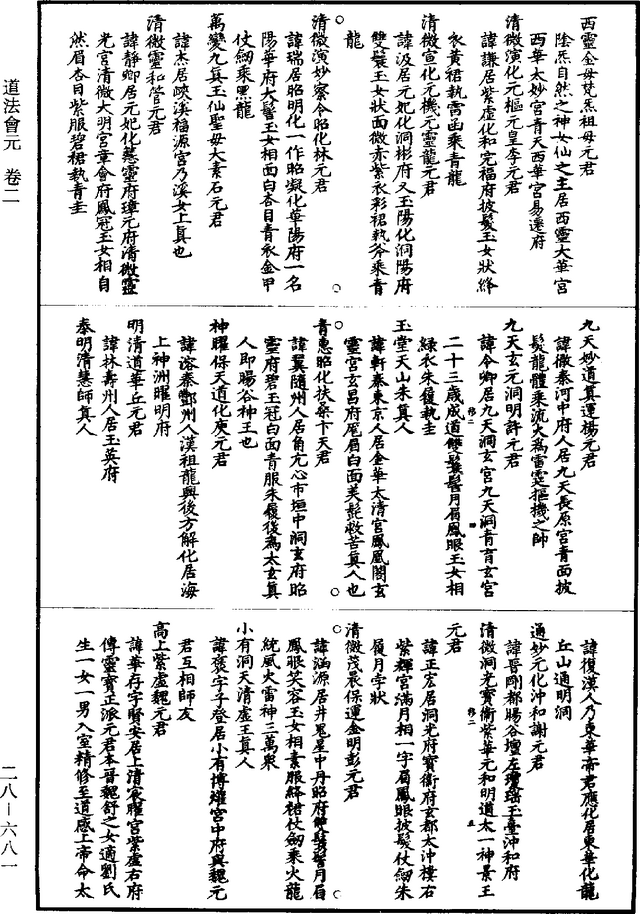 西靈金母梵炁祖母元君
陰炁自然之神女仙之主居西靈大華宮
西華太妙宮青天西華宮易遷府
清微演化元樞元皇李元君
諱謙居紫虛化和完福府披髮玉女狀絳
衣黃裙執雷函乘青龍
清微宣化元機元靈龍元君
諱汲居元妃化洞彬府又玉陽化洞陽府
雙鬟玉女狀面微赤紫衣彩裙執斧乘青
龍
清微演妙察令昭化林元君
諱瑞居昭明化一作昭凝化華陽府一名
陽華府大髻玉女相面白杏目青衣金甲
仗劒乘黑龍
萬變九真玉仙聖母大素石元君
諱杰居峽溪福源宮乃溪女上真也
清微靈和管元君
諱靜卿居元妃化慧靈府璋元府清微靈
光宮清微大明宮章會府鳳冠玉女相自
然眉杏目紫服碧裙執青圭
九天妙道真運楊元君
諱徹秦河中府人居九天長原宮青面披
髮龍體乘流火為雷霆摳機之帥
九天玄元洞明許元君
諱令卿居九天洞玄宮九天洞青育玄宮
二十三歲成道雙鬟髻月眉鳳眼玉女相
綠衣朱履執圭
玉堂天山朱真人
諱軒秦東京人居金華太清宮鳳凰閣玄
靈宮玄昌府厖眉白面美髭救苦真人也
青惠昭化扶桑卞天君
諱翼隨州人居角亢心市垣中洞玄府昭
靈府碧玉冠白面青服朱履後為太玄真
人即腸谷神王也
神曜保天道化庾元君
諱溶秦鄭州人漢祖龍興後方解化居海
上神洲曜明府
明清道華丘元君
諱林壽州人居玉英府
泰明清慧師真人
諱復漢人乃東華帝君應化居東華化龍
丘山通明洞
通妙元化沖和謝元君
諱晋剛都腸谷壇左瓊瑶玉臺沖和府
清微洞光寶衞紫華元和明道太一神景王
元君
諱正宏居洞光府寶衞府玄都太沖樓右
紫輝宮滿月相一字眉鳳眼披髮仗劒朱
履月字狀
清微茂晨保運金明彭元君
諱涵源居井鬼星中丹昭府雙鬟髻月眉
鳳眼笑容玉女相素服絳裙仗劒乘火龍
統風火雷神三萬衆
小有洞天清虛王真人
諱褒字子登居小有博耀宮中府與魏元
君互相師友
高上紫虛魏元君
諱華存字賢安居上清宸曜宮紫虛右府
傳靈寶正派元君本晉魏舒之女適劉氏
生一女一男入室精修至道感上帝命太
道法會元　卷二
二八—六八一